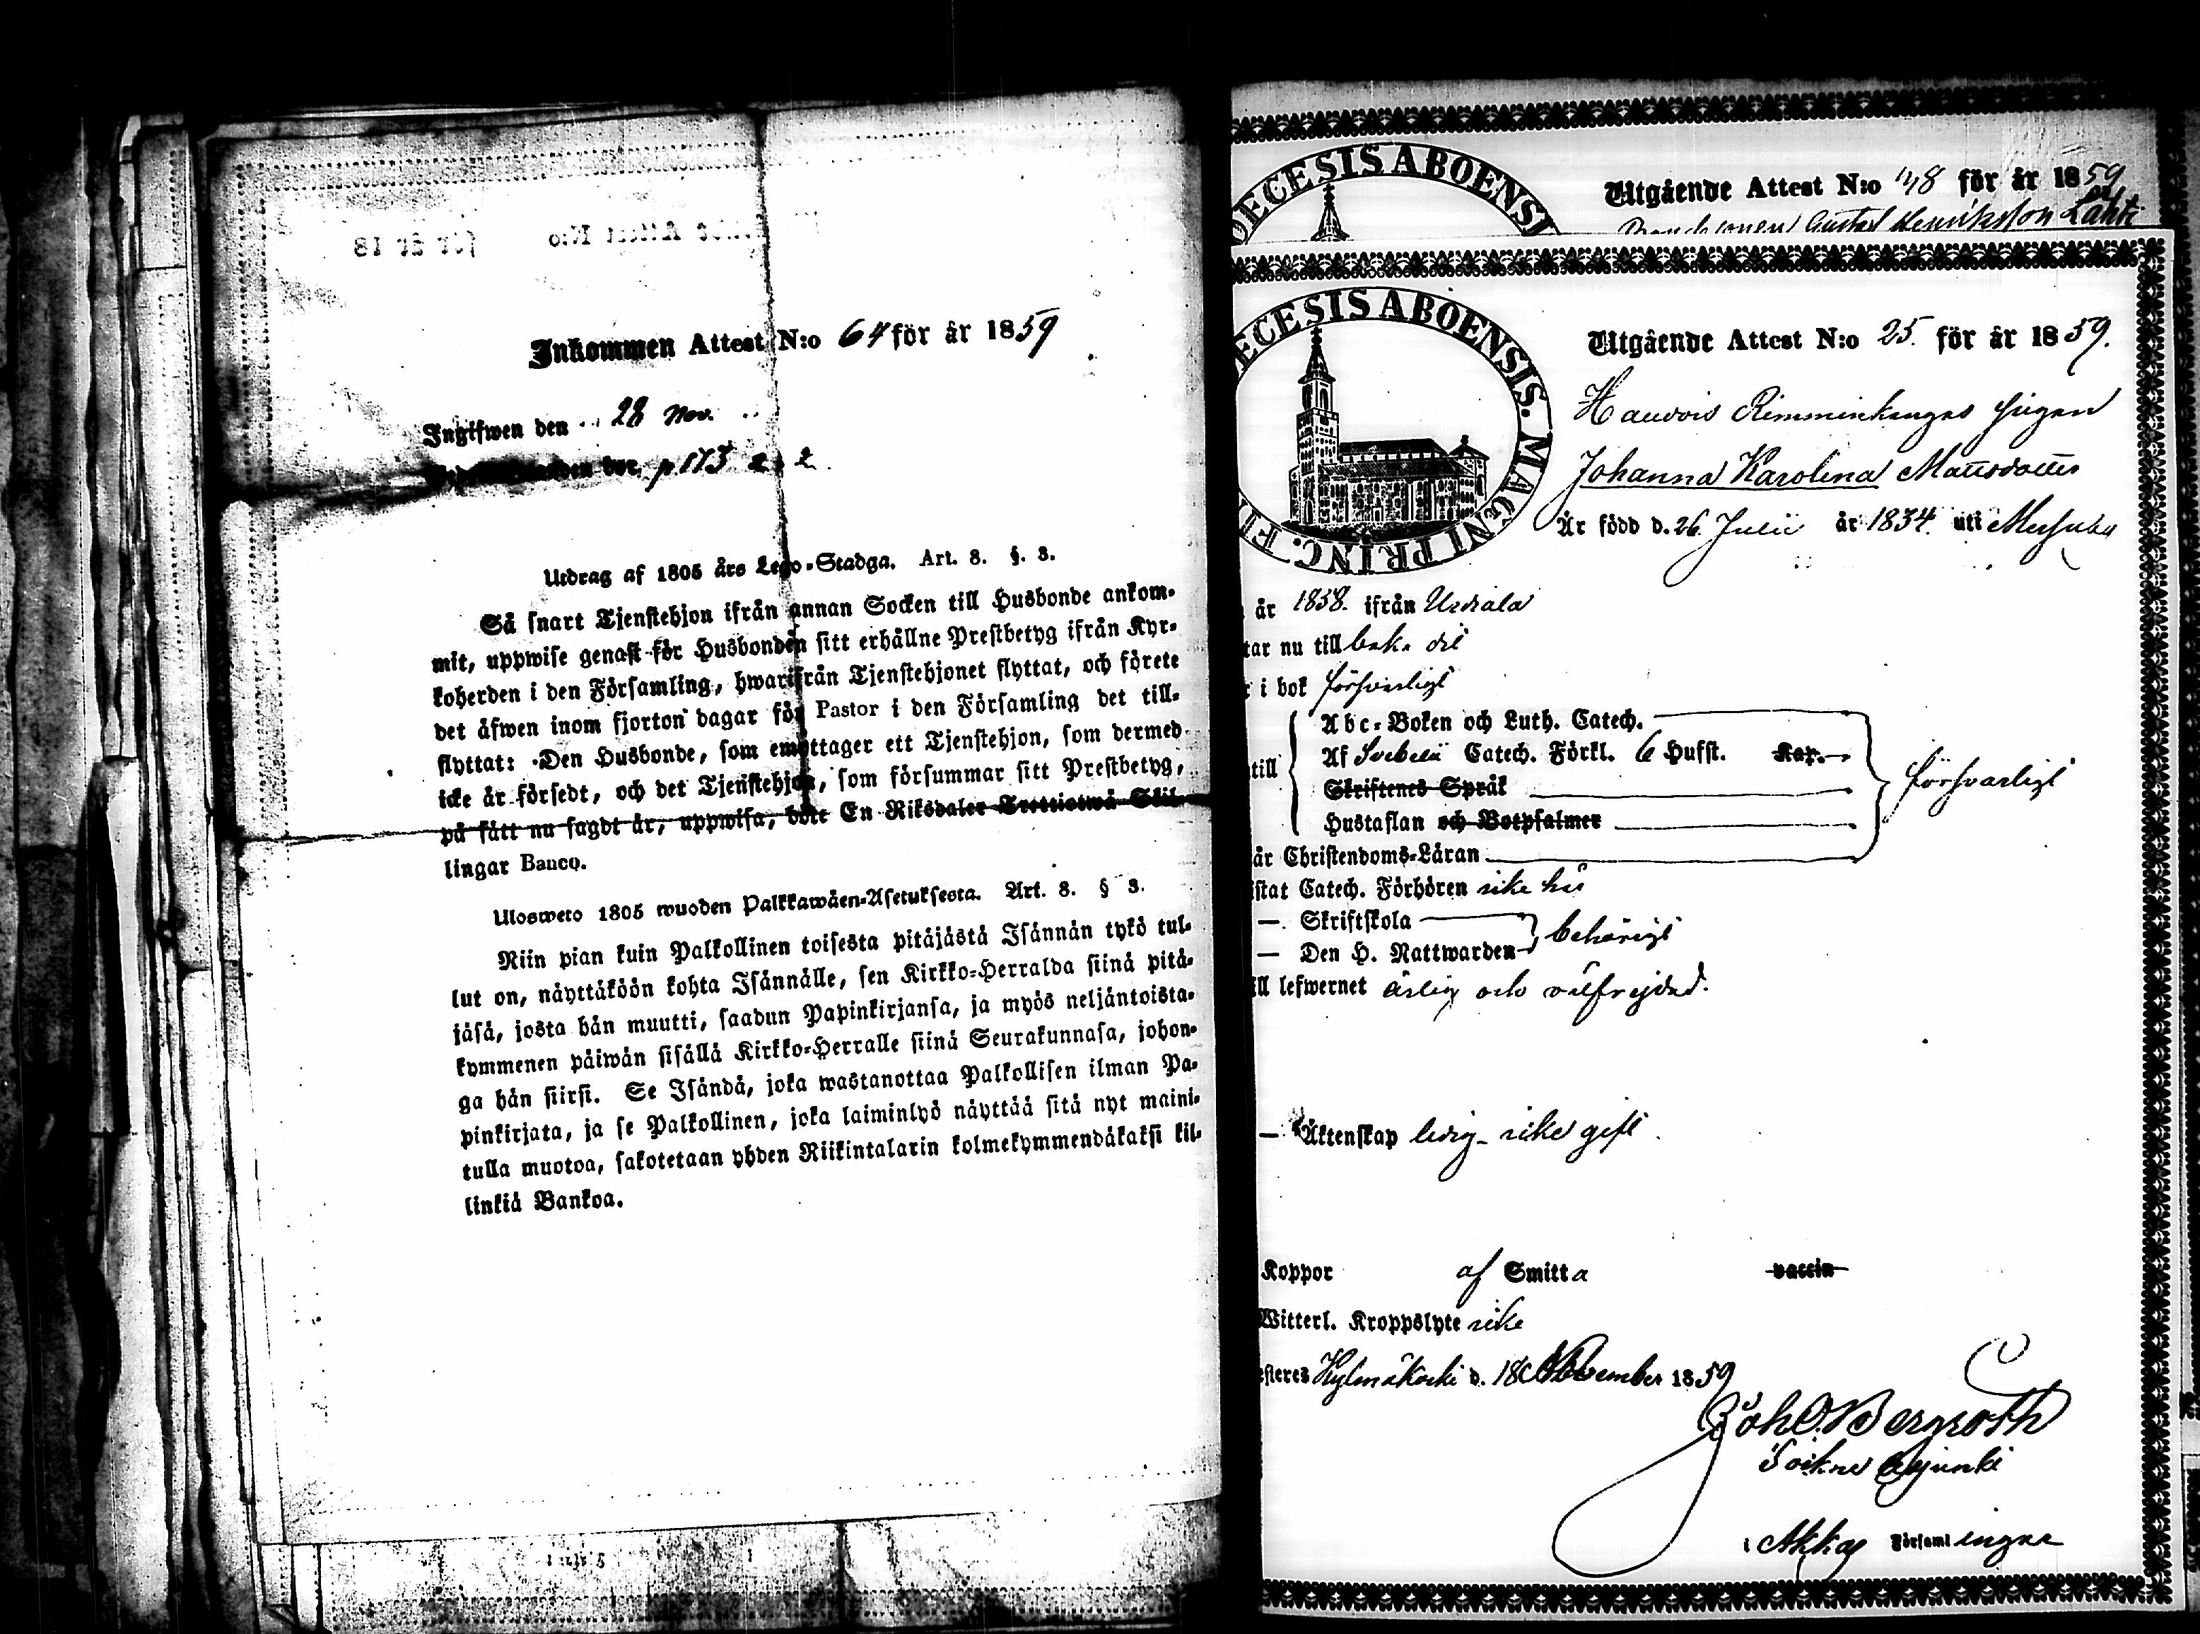 Inkommen Attest N:o 64 för år 1859
Ingifwen den 28 Nov.
p. 173 2
Utdrag af 1805 års Lego-Stadga. Art. 8. §. 3.
Så snart Tjenstehjon ifrån annan Socken till Husbonde ankom-
mit, uppwise genast för Husbonden sitt erhållne Prestbetyg ifrån Kyr-
koherden i den Församling, hwarifrån Tjenstehjonet flyttat, och förete
det äfwen inom fjorton dagar för Pastor i den Församling det till-
flyttat: Den Husbonde, som emottager ett Tjenstehjon, som dermed
icke är försedt, och det Tjenstehjon, som försummar sitt Prestbetyg,
på sätt nu sagdt är, uppwisa, böte En Riksdaler Trettiotwå Skil-
lingar Banco.
Ulosweto 1805 wuoden Palkkawäen-Asetuksesta. Art. 8. § 3.
Niin pian kuin Palkollinen toisesta pitäjästä Isännän tykö tul-
lut on, näyttäköön kohta Isännälle, sen Kirkko-Herralda siinä pitä-
jäsä, josta hän muutti, saadun Papinkirjansa, ja myös neljäntoista-
kymmenen päiwän sisällä Kirkko-Herralle siinä Seurakunnasa, johon-
ga hän siirsi. Se Isändä, joka wastanottaa Palkollisen ilman Pa-
pinkirjata, ja se Palkollinen, joka laiminlyö näyttää sitä nyt maini-
tulla muotoa, sakotetaan yhden Riikintalarin kolmekymmendäkaksi kil-
linkiä Bankoa.
DECESIS ABOENSI
Utgående Attest N:o 48 för år 1859
Gustaf Henriksson Lahti
ECESIS ABOENSIS. MAGNI PRINC. FI
Utgående Attest N:o 25. för år 1859.
Rimminkangas pigan
Johanna Karolina Mattsdotter
Är född d. 26 Julii år 1834. uti
år 1858. ifrån Urdiala
tar nu till baka dit
i bok försvarligt
Abc-Boken och Luth. Catech.
till Af Svebelii Catech. Förkl. 6 Hufst. Kap.
Skriftenes Språk
Hustaflan och Botpsalmer
försvarligt
är Christendoms-Läran
istat Catech. Förhören icke här
— Skriftskola
— Den H. Nattwarden behörigt
ill lefwernet ärlig och välfrejdad.
— Äktenskap ledig - icke gift.
Koppor af Smitta vaccin
Witterl. Kroppslyte icke
esteres Kylmäkoski d. 18 November 1859
Joh. O. Bergroth
Sockne Adjunkt
i Akkas Församlingar